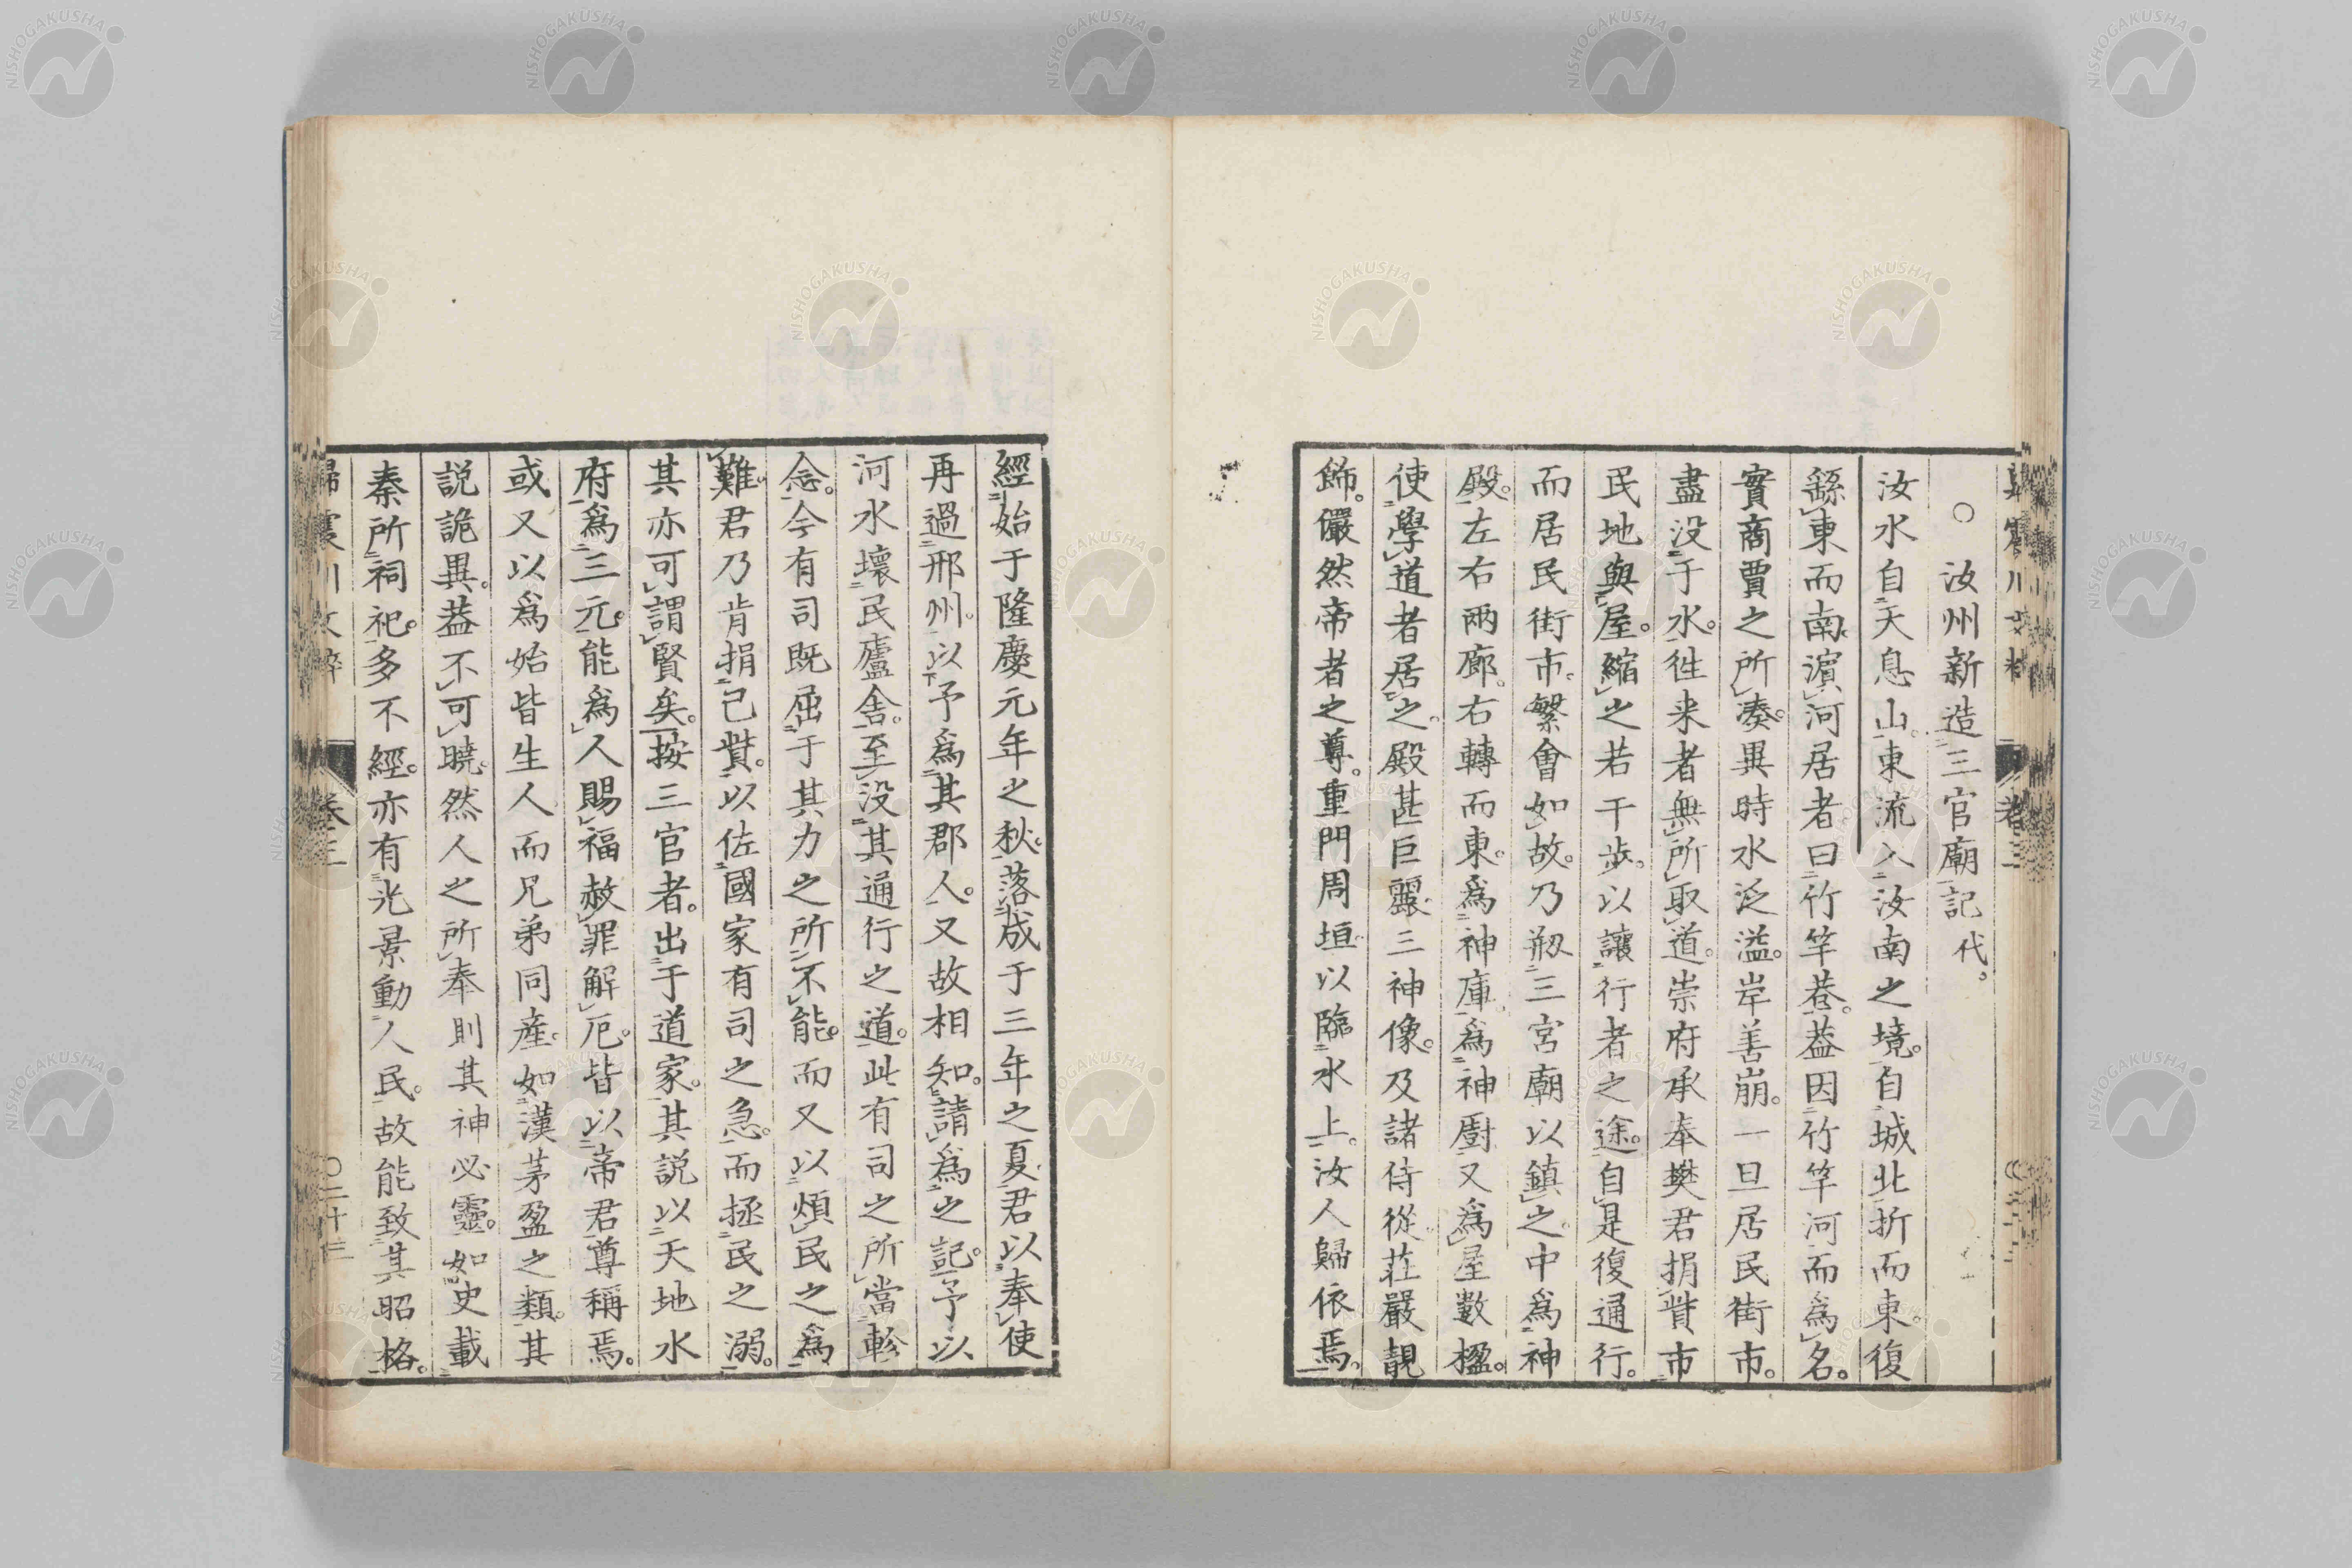 ○汝州新造三官廟記代。
汝水自天息山。東流入汝南之境。自城北折而東。復
繇東而南。濵河居者曰竹竿巷。葢因竹竿河而為名。
實商賈之所湊。異時水泛溢。岸善崩。一旦居民街市。
盡没于水。徃来者無所取道。崇府承奉樊君捐貲市
民地與屋。縮之若干歩。以讓行者之途。自是復通行。
而居民街市。繁會如故。乃剏三宮廟以鎮之。中爲神
殿。左右兩廊。右轉而東。爲神庫。爲神廚又爲屋數楹。
使學道者居之。殿甚巨麗三神像。及諸侍從。荘嚴靚
飾。儼然帝者之尊。重門周垣以臨水上。汝人歸依焉。
經始于隆慶元年之秋。落成于三年之夏君以奉使
再過邢州。以予爲其郡人。又故相知。請爲之記。予以
河水壞民廬舎。至没其通行之道。此有司之所當軫
念。今有司既屈于其力之所不能。而又以煩民之爲
難。君乃肯捐己貲。以佐國家有司之急。而拯民之溺。
其亦可謂賢矣。按三官者。出于道家。其説以天地水
府爲三元。能爲人賜福赦罪解厄。皆以帝君尊稱焉。
或又以爲始皆生人而兄弟同産。如漢茅盈之類。其
説詭異。葢不可曉。然人之所奉則其神必靈。如史載
秦所祠祀。多不經。亦有光景動人民。故能致其昭格。
歸震川文粹 卷三 ○二十三